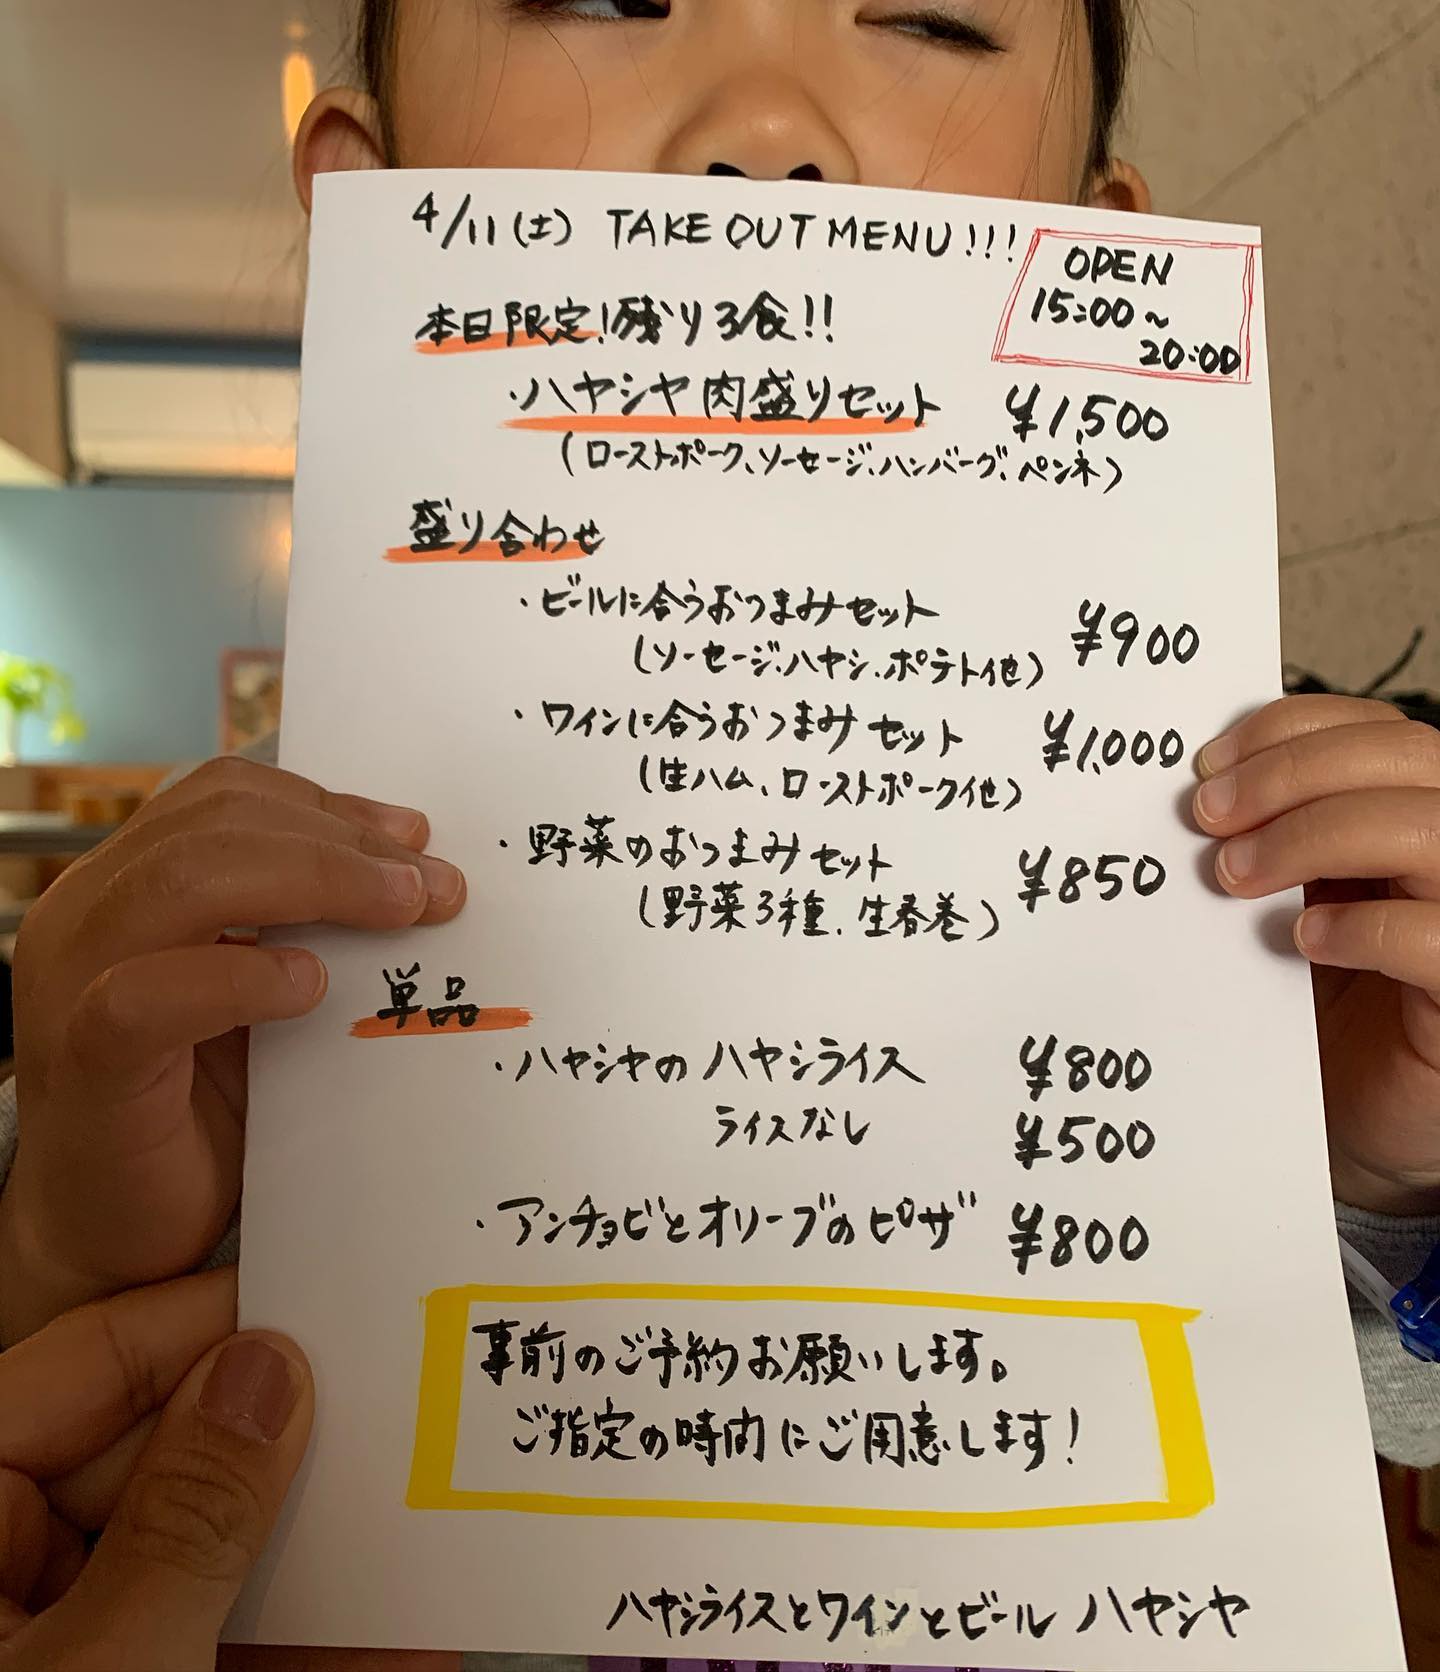 4/11(土) TAKE OUT MENU!!!
OPEN
15:00～
20:00
本日限定!残り3食!!
・ハヤシヤ肉盛りセット ¥1,500
(ローストポーク、ソーセージ、ハンバーグ、ペンネ)
盛り合わせ
・ビールに合うおつまみセット ¥900
(ソーセージ、ハヤシ、ポテト他)
・ワインに合うおつまみセット ¥1,000
(生ハム、ローストポーク他)
・野菜のおつまみセット ¥850
(野菜3種、生春巻)
単品
・ハヤシヤのハヤシライス ¥800
ライスなし ¥500
・アンチョビとオリーブのピザ ¥800
事前のご予約お願いします。
ご指定の時間にご用意します!
ハヤシライスとワインとビール ハヤシヤ